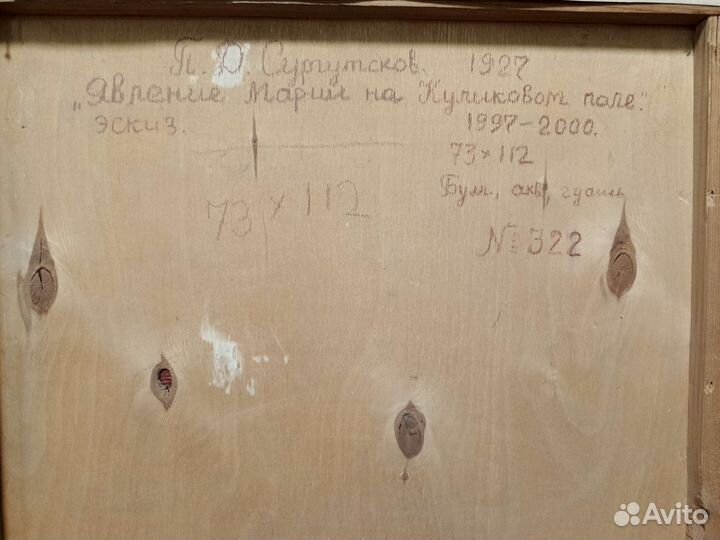 П. Д. Сургутсков. 1927
„Явление Марии на Куликовом поле."
эскиз. 1997-2000.
73×112
Бум., акв, гуашь
73×112
№322
Avito